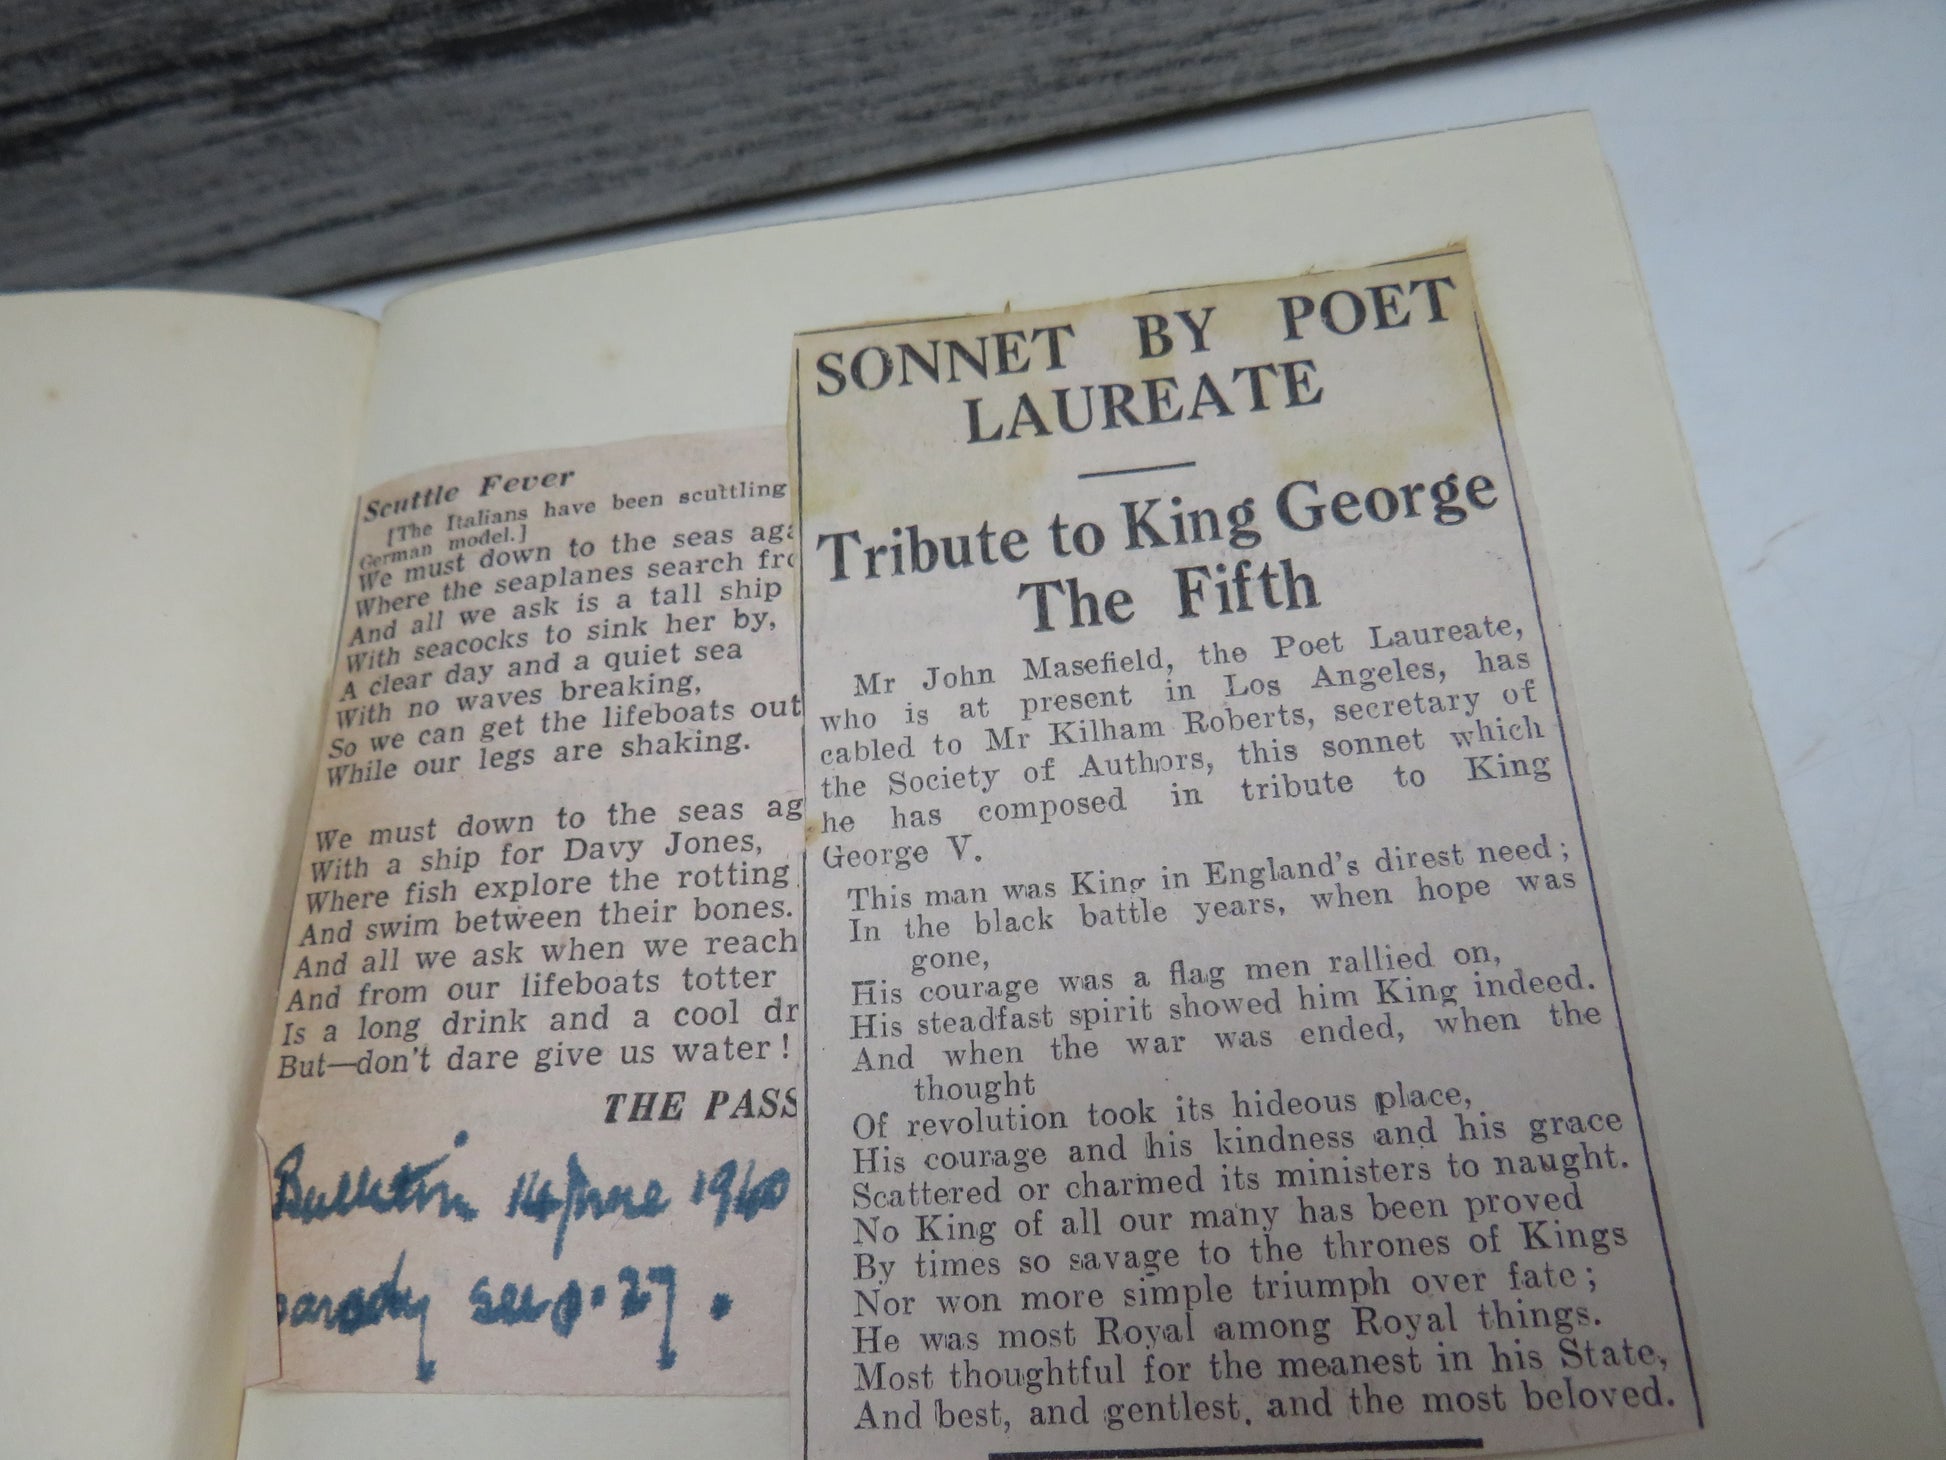 Scuttle Fever
[The Italians have been scuttling
German model.]
We must down to the seas aga
Where the seaplanes search fro
And all we ask is a tall ship
With seacocks to sink her by,
A clear day and a quiet sea
With no waves breaking,
So we can get the lifeboats out
While our legs are shaking.
We must down to the seas ag
With a ship for Davy Jones,
Where fish explore the rotting
And swim between their bones.
And all we ask when we reach
And from our lifeboats totter
Is a long drink and a cool dr
But—don't dare give us water!
THE PASS
Bulletin 14 June 1940
parody see p. 27.
SONNET BY POET
LAUREATE
Tribute to King George
The Fifth
Mr John Masefield, the Poet Laureate,
who is at present in Los Angeles, has
cabled to Mr Kilham Roberts, secretary of
the Society of Authors, this sonnet which
he has composed in tribute to King
George V.
This man was King in England's direst need;
In the black battle years, when hope was
gone,
His courage was a flag men rallied on,
His steadfast spirit showed him King indeed.
And when the war was ended, when the
thought
Of revolution took its hideous place,
His courage and his kindness and his grace
Scattered or charmed its ministers to naught.
No King of all our many has been proved
By times so savage to the thrones of Kings
Nor won more simple triumph over fate;
He was most Royal among Royal things.
Most thoughtful for the meanest in his State,
And best, and gentlest, and the most beloved.